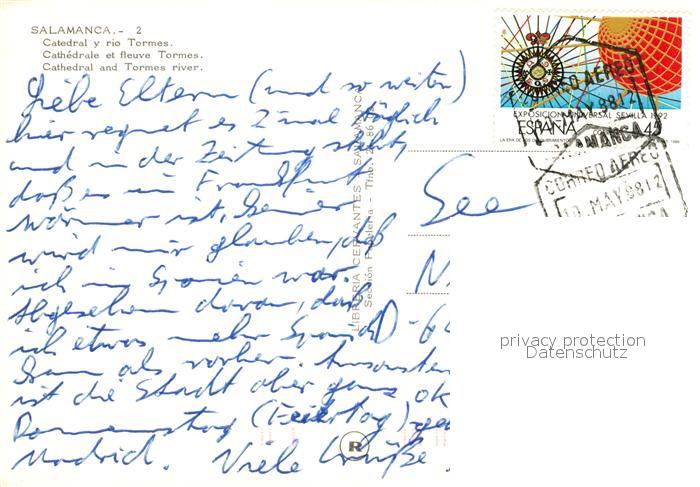 SALAMANCA.- 2
Catedral y río Tormes.
Cathédrale et fleuve Tormes.
Cathedral and Tormes river.
Liebe Eltern (und so weiter)
hier regnet es 2 mal täglich
und in der Zeitung steht,
daß es in Frankfurt
wärmer ist. Keiner
wird mir glauben, daß
ich in Spanien war.
Abgesehen davon, daß
ich etwas mehr Spanisch
kann als vorher. Ansonsten
ist die Stadt aber ganz ok
Donnerstag (Feiertag)
Madrid. Viele Grüße
LIBRERIA CERVANTES SALAMANCA
R
See
N
D-6
EXPOSICION UNIVERSAL SEVILLA 1992
ESPAÑA 45
CORREO AEREO
MAY.88 12
SALAMANCA
CORREO AEREO
10.MAY.88 12
privacy protection
Datenschutz